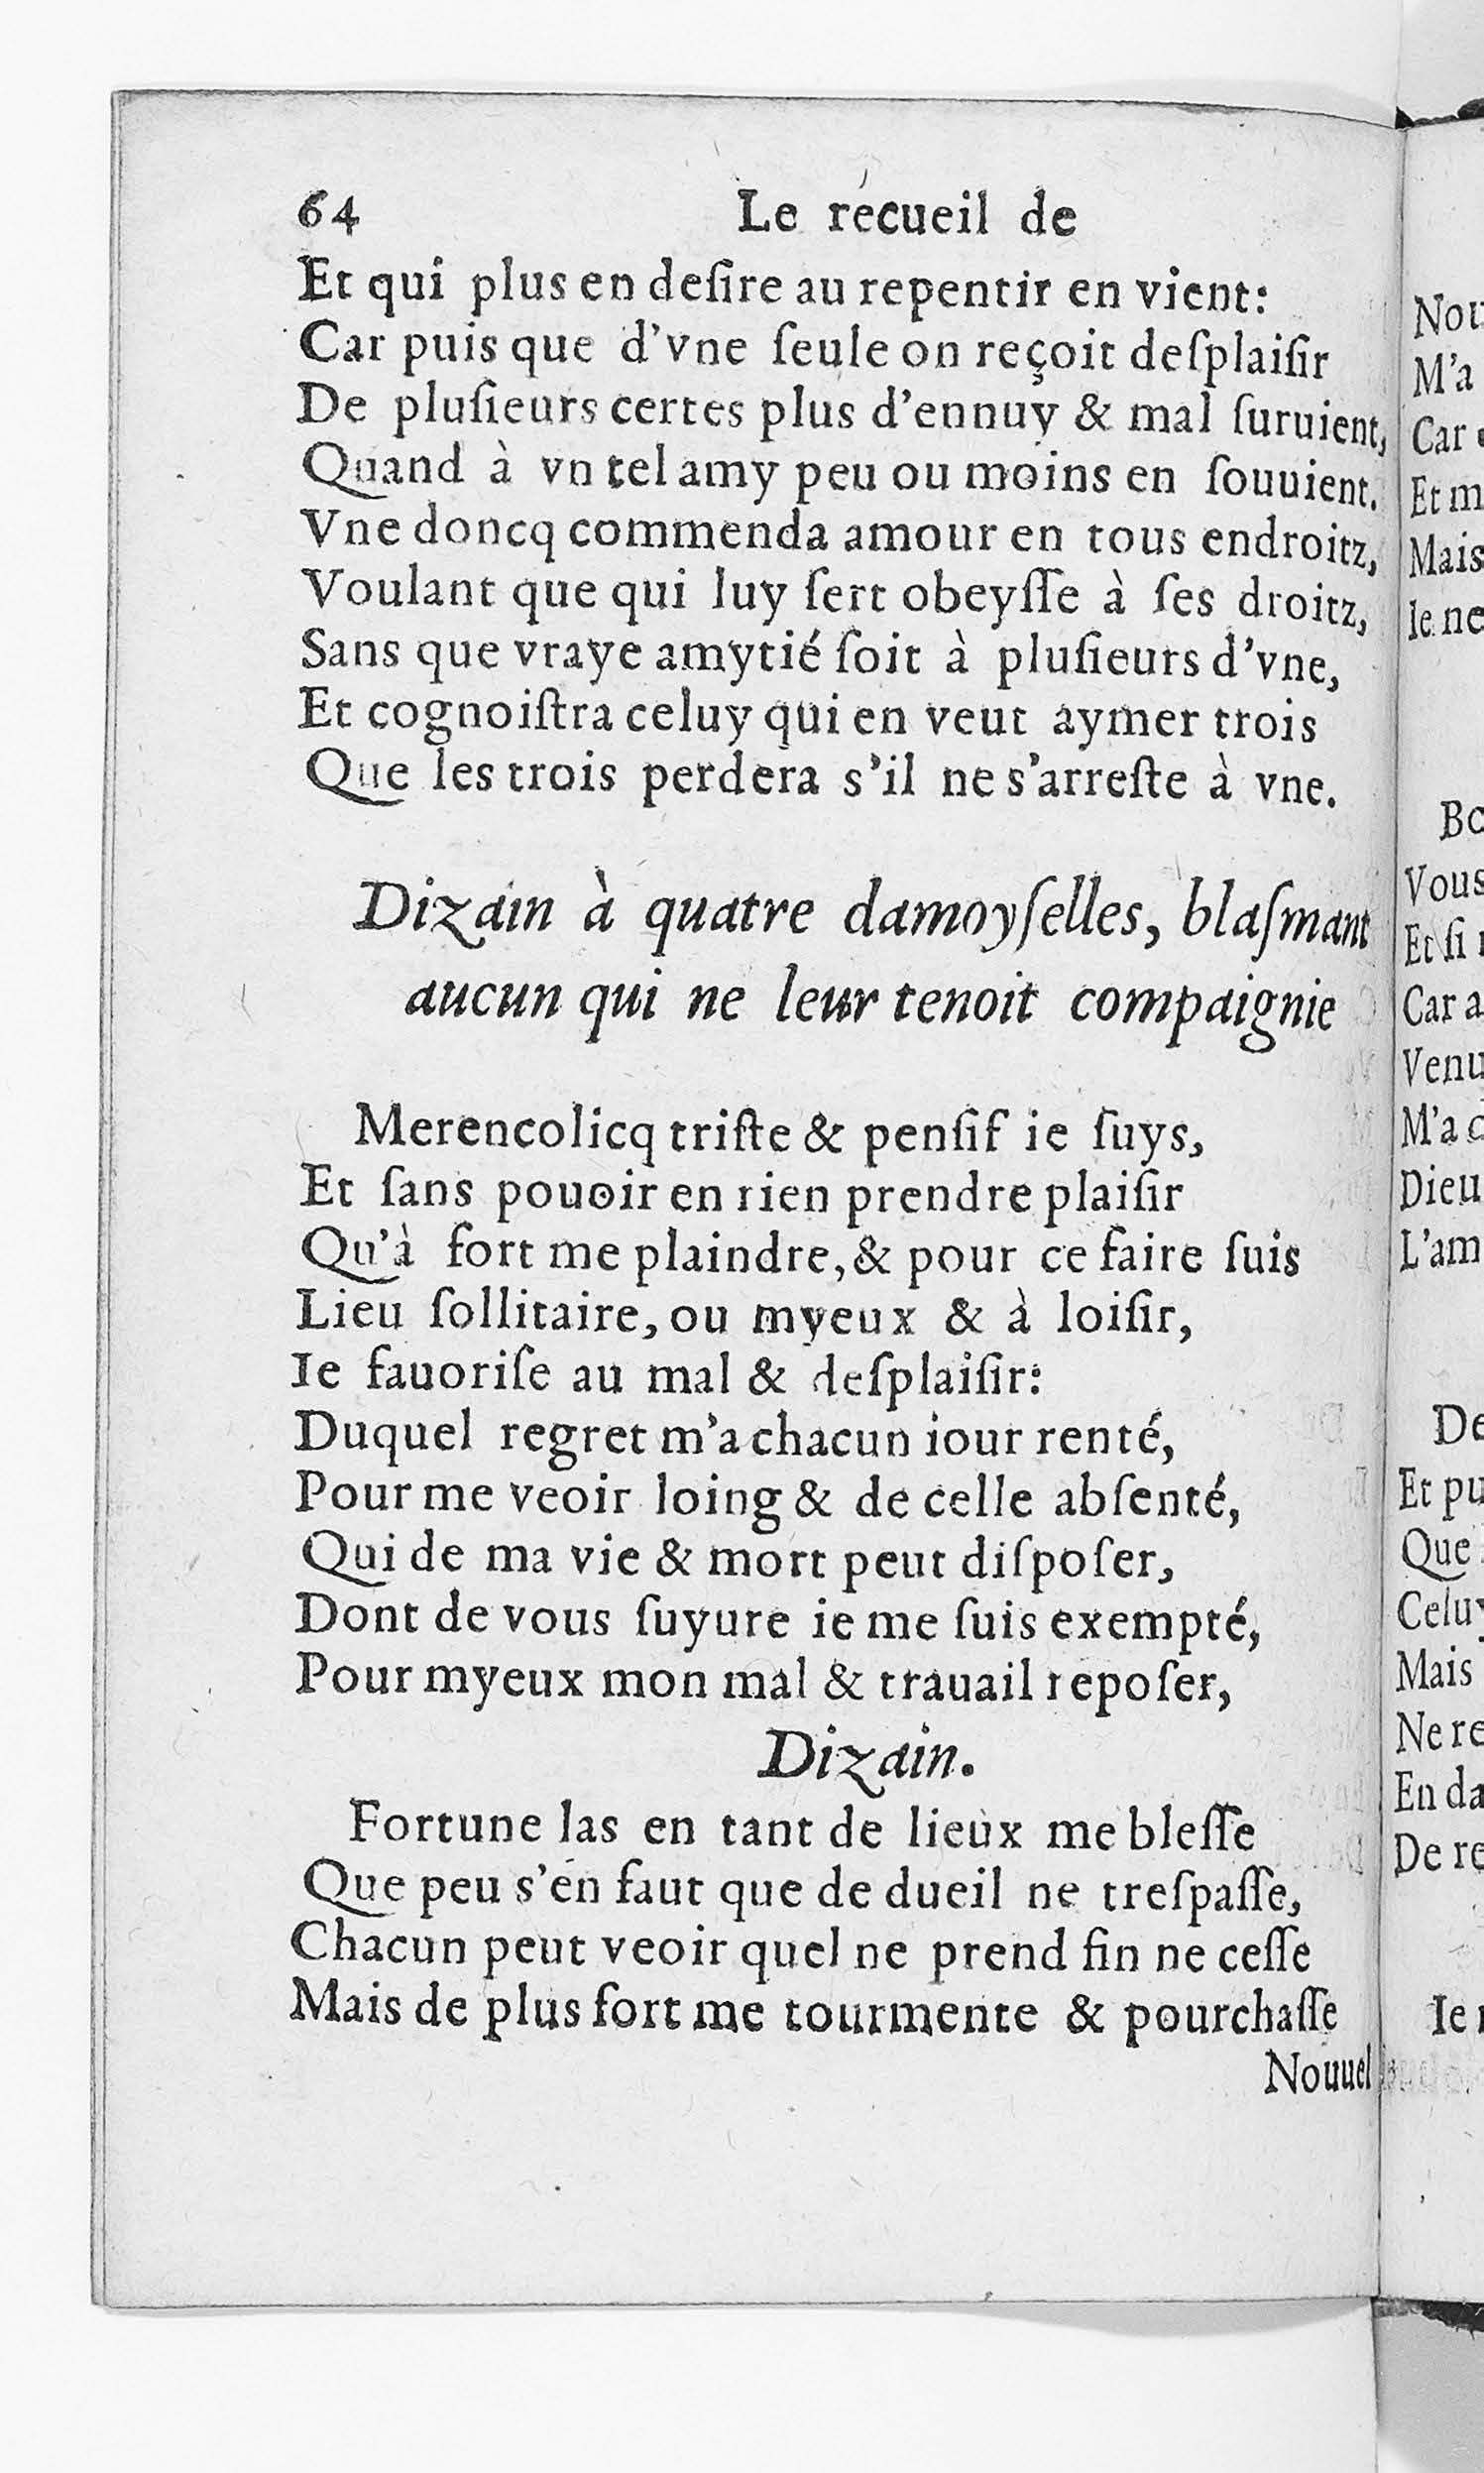 64 Le recueil de
Et qui plus en deſire au repentir en vient:
Car puis que d'vne ſeule on reçoit deſplaiſir
De pluſieurs certes plus d'ennuy & mal ſuruient,
Quand à vn tel amy peu ou moins en ſouuient.
Vne doncq commenda amour en tous endroitz,
Voulant que qui luy ſert obeyſſe à ſes droitz,
Sans que vraye amytié ſoit à pluſieurs d'vne,
Et cognoiſtra celuy qui en veut aymer trois
Que les trois perdera s'il ne s'arreſte à vne.
Dizain à quatre damoyſelles, blaſmant
aucun qui ne leur tenoit compaignie
Merencolicq triſte & penſif ie ſuys,
Et ſans pouoir en rien prendre plaiſir
Qu'à fort me plaindre, & pour ce faire ſuis
Lieu ſollitaire, ou myeux & à loiſir,
Ie fauoriſe au mal & deſplaiſir:
Duquel regret m'a chacun iour renté,
Pour me veoir loing & de celle abſenté,
Qui de ma vie & mort peut diſpoſer,
Dont de vous ſuyure ie me ſuis exempté,
Pour myeux mon mal & trauail repoſer,
Dizain.
Fortune las en tant de lieux me bleſſe
Que peu s'en faut que de dueil ne treſpaſſe,
Chacun peut veoir quel ne prend fin ne ceſſe
Mais de plus fort me tourmente & pourchaſſe
Nouuel
M'a
Car
Et m
Mais
Ie ne
Vous
Et ſi
Car a
Venu
M'a c
Dieu
L'am
De
Et pu
Que
Celuy
Mais
Ne re
En da
De re
Ie